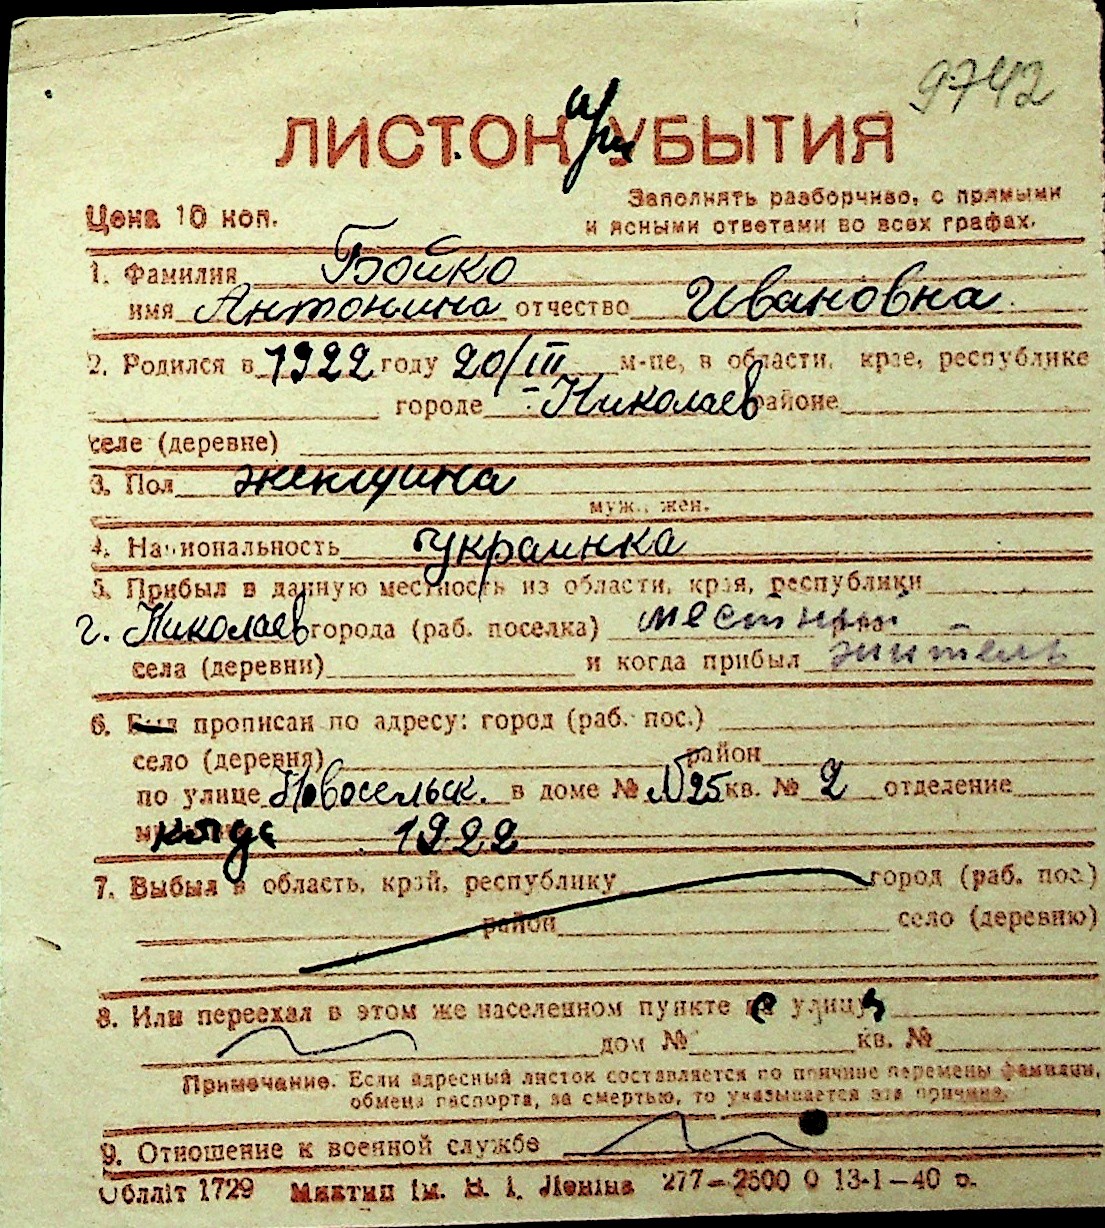 9742
ЛИСТОК УБЫТИЯ
при
Цена 10 коп.
Заполнять разборчиво, с прямыми
и ясными ответами во всех графах.
1. Фамилия Бойко
имя Антонина отчество Ивановна
2. Родился в 1922 году 20/III м-це, в области, крае, республике
городе Николаев районе
селе (деревне)
3. Пол женщина
муж., жен.
4. Национальность украинка
5. Прибыл в данную местность из области, края, республики
г. Николаев города (раб. поселка) местный
села (деревни) и когда прибыл житель
6. Был прописан по адресу: город (раб. пос.)
село (деревня) район
по улице Новосельск. в доме № N25 кв. № 2 отделение
когда 1922
7. Выбыл в область, край, республику город (раб. пос.)
район село (деревню)
8. Или переехал в этом же населенном пункте с улицы
дом № кв. №
Примечание. Если адресный листок составляется по причине перемены фамилии,
обмена паспорта, за смертью, то указывается эта причина.
9. Отношение к военной службе
Облліт 1729 Миктип ім. В. І. Леніна 277—2500 0 13-І—40 р.